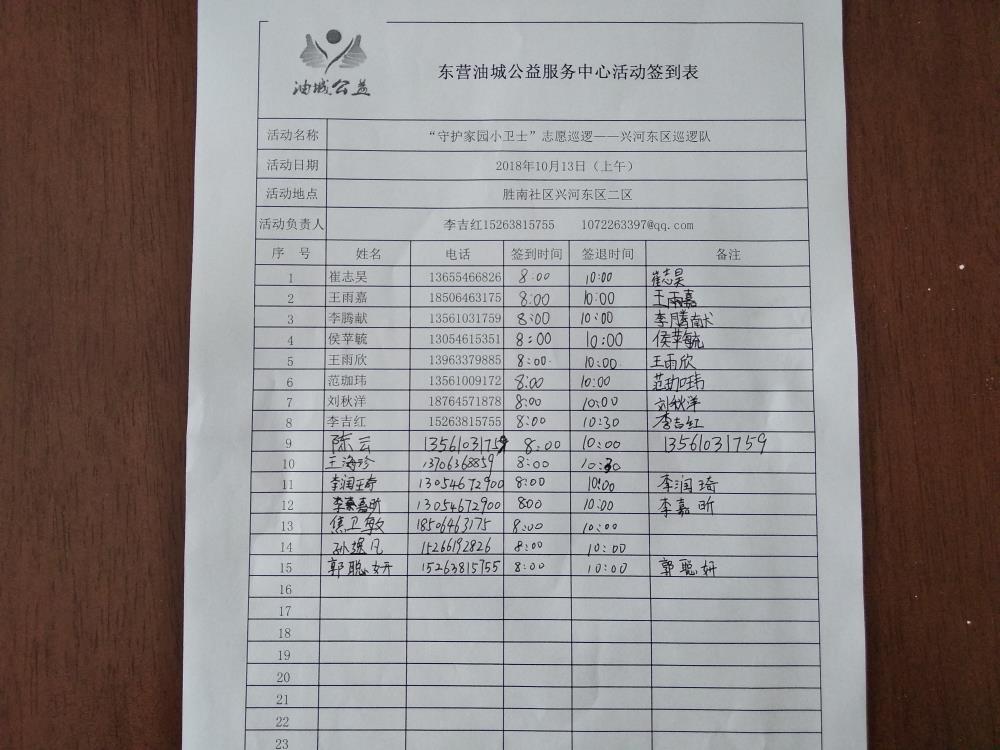 油城公益
东营油城公益服务中心活动签到表
活动名称 “守护家园小卫士”志愿巡逻——兴河东区巡逻队
活动日期 2018年10月13日（上午）
活动地点 胜南社区兴河东区二区
活动负责人 李吉红15263815755 1072263397@qq.com
序 号 姓名 电话 签到时间 签退时间 备注
1 崔志昊 13655466826 8:00 10:00 崔志昊
2 王雨嘉 18506463175 8:00 10:00 王雨嘉
3 李腾献 13561031759 8:00 10:00 李腾献
4 侯苹毓 13054615351 8:00 10:00 侯苹毓
5 王雨欣 13963379885 8:00 10:00 王雨欣
6 范珈玮 13561009172 8:00 10:00 范珈玮
7 刘秋洋 18764571878 8:00 10:00 刘秋洋
8 李吉红 15263815755 8:00 10:30 李吉红
9 陈云 13561031759 8:00 10:00 13561031759
10 王海珍 13706368859 8:00 10:30
11 李润琦 13054672900 8:00 10:00 李润琦
12 李嘉昕 13054672900 800 10:00 李嘉昕
13 焦卫敏 18506463175 8:00 10:00
14 孙逸凡 15266192826 8:00 10:00
15 郭聪妍 15263815755 8:00 10:00 郭聪妍
16
17
18
19
20
21
22
23